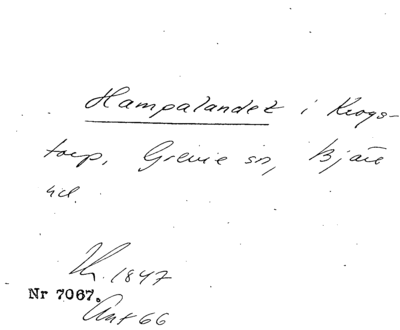 Hampalandet i Krogs-
torp, Grevie sn, Bjäre
hd.
1847
Nr 7067.
Ant 66